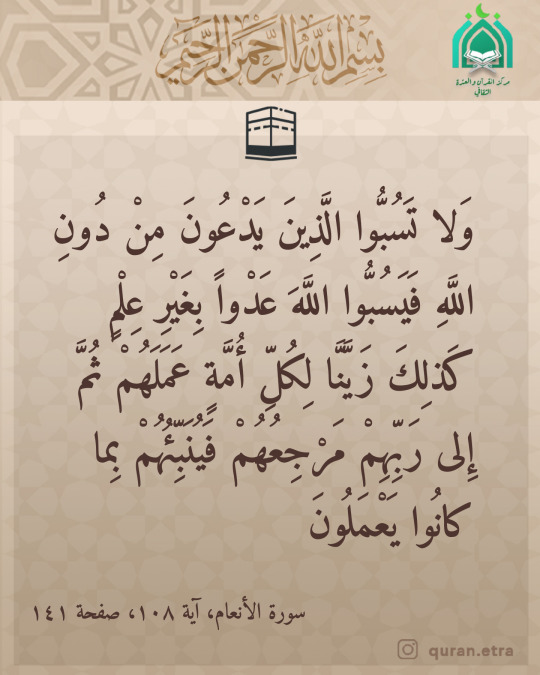 بسم الله الرحمن الرحيم
مركز القرآن والعترة
الثقافي
وَلا تَسُبُّوا الَّذِينَ يَدْعُونَ مِنْ دُونِ
اللَّهِ فَيَسُبُّوا اللَّهَ عَدْواً بِغَيْرِ عِلْمٍ
كَذلِكَ زَيَّنَّا لِكُلِّ أُمَّةٍ عَمَلَهُمْ ثُمَّ
إِلى رَبِّهِمْ مَرْجِعُهُمْ فَيُنَبِّئُهُمْ بِما
كانُوا يَعْمَلُونَ
سورة الأنعام، آية ١٠٨، صفحة ١٤١
quran.etra